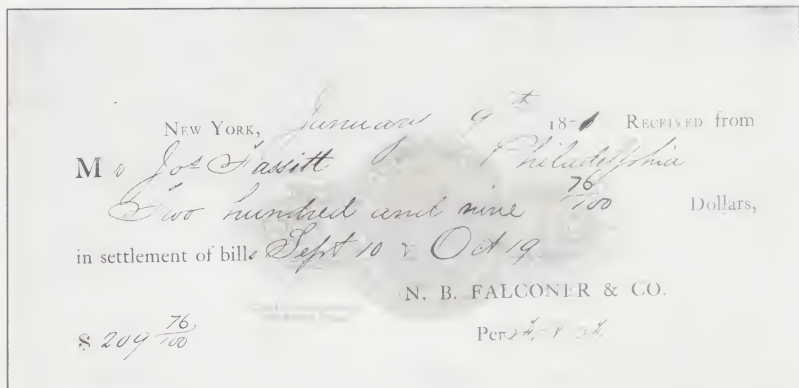 NEW YORK, January 9th 1871 RECEIVED from
Mr Jos Fassitt Philadelphia
Two hundred and nine 76/100 Dollars,
in settlement of bills Sept 10 & Oct 19
N. B. FALCONER & CO.
$ 209 76/100 Per